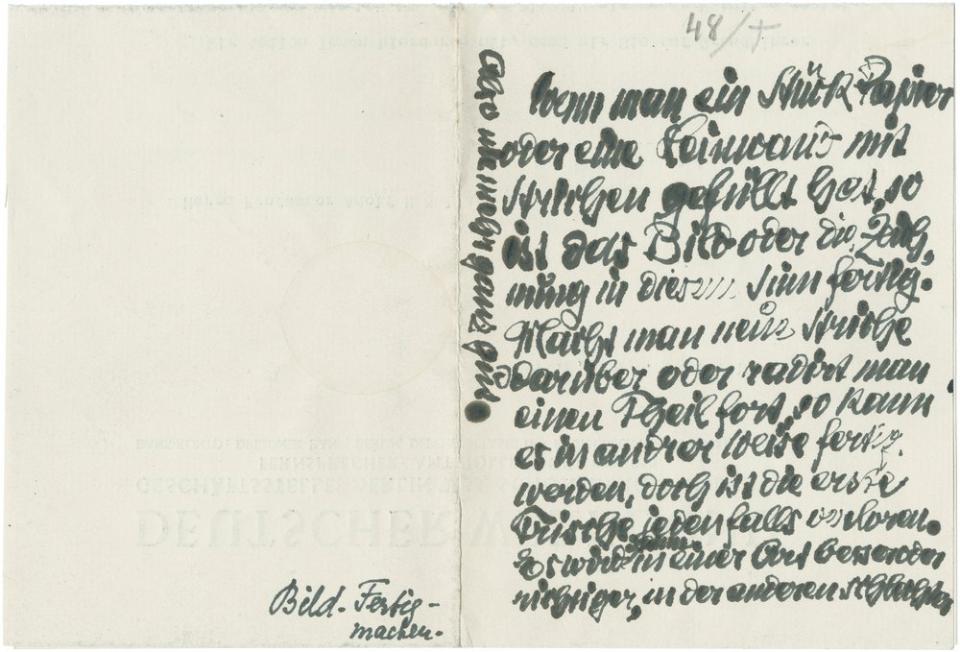 48/+
Wenn man ein Stück Papier
oder eine Leinwand mit
Strichen gefüllt hat, so
ist das Bild oder die Zeich,
nung in diesem Sinn fertig.
Macht man neue Striche
darüber oder radirt man
einen Theil fort, so kann
es in andrer Weise fertig
werden, doch ist die erste
Frische jedenfalls verloren.
Es wird in einer Art besonder
richtiger, in der anderen schlechter
also nie mehr ganz gut.
Bild-Fertig-
machen.
DEUTSCHER
GESCHÄFTSSTELLE: BERLIN
FERNSPRECHER: AMT